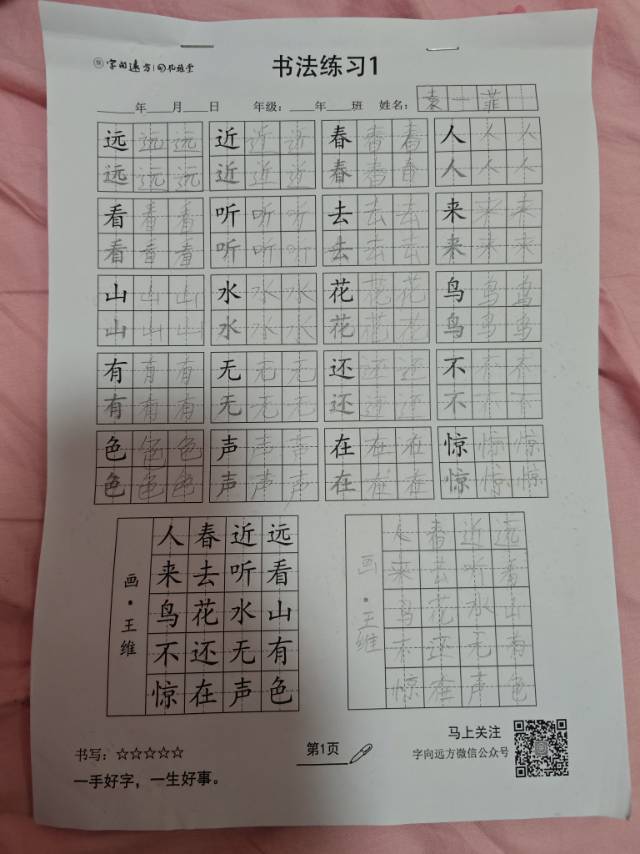 字向远方
书法练习1
年 月 日 年级： 年 班 姓名： 袁一菲
远远远 近近近 春春春 人人人
远远远 近近近 春春春 人人人
看看看 听听听 去去去 来来来
看看看 听听听 去去去 来来来
山山山 水水水 花花花 鸟鸟鸟
山山山 水水水 花花花 鸟鸟鸟
有有有 无无无 还还还 不不不
有有有 无无无 还还还 不不不
色色色 声声声 在在在 惊惊惊
色色色 声声声 在在在 惊惊惊
画·王维
远看山有色
近听水无声
春去花还在
人来鸟不惊
画·王维
远看山有色
近听水无声
春去花还在
人来鸟不惊
书写：☆☆☆☆☆
一手好字，一生好事。
第1页
马上关注
字向远方微信公众号